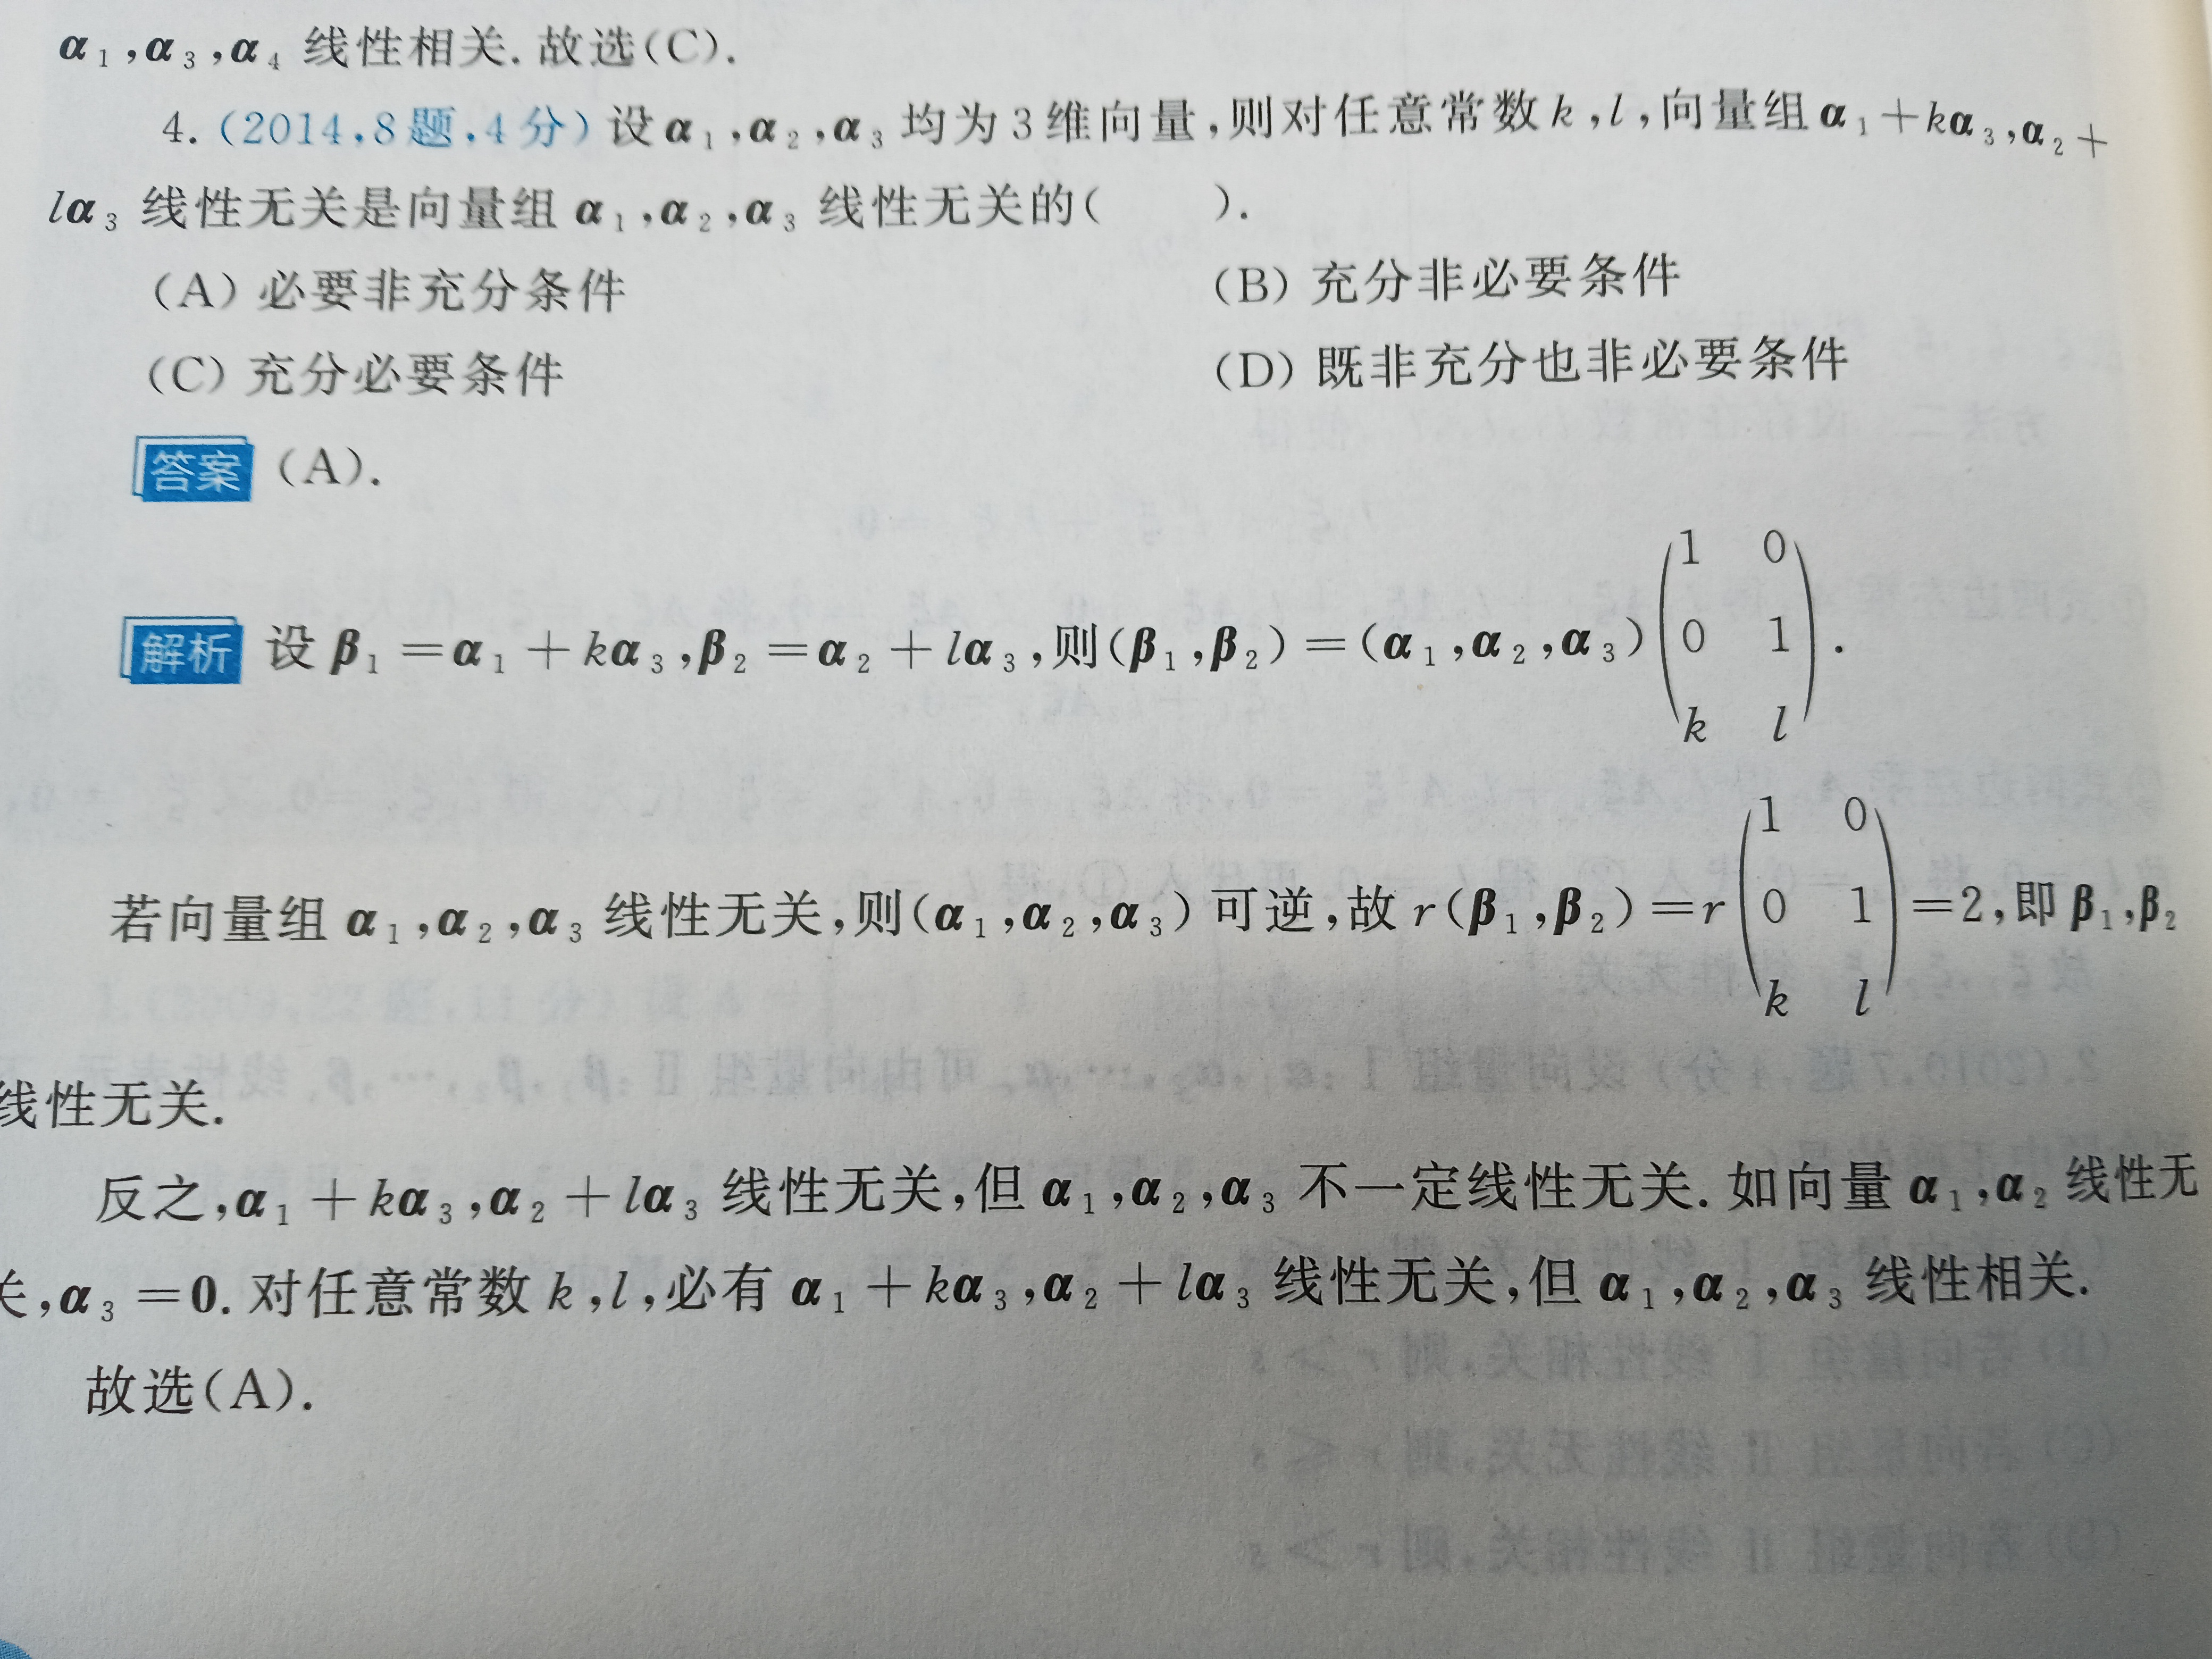 α₁,α₃,α₄ 线性相关.故选(C).
4.(2014,8题,4分)设α₁,α₂,α₃均为3维向量,则对任意常数k,l,向量组α₁+kα₃,α₂+
lα₃ 线性无关是向量组 α₁,α₂,α₃ 线性无关的( ).
(A)必要非充分条件 (B)充分非必要条件
(C)充分必要条件 (D)既非充分也非必要条件
答案 (A).
解析 设 β₁=α₁+kα₃,β₂=α₂+lα₃,则(β₁,β₂)=(α₁,α₂,α₃)(1 0
0 1
k l).
若向量组 α₁,α₂,α₃ 线性无关,则(α₁,α₂,α₃)可逆,故 r(β₁,β₂)=r(1 0
0 1
k l)=2,即 β₁,β₂
线性无关.
反之,α₁+kα₃,α₂+lα₃ 线性无关,但 α₁,α₂,α₃ 不一定线性无关.如向量 α₁,α₂ 线性无
关,α₃=0.对任意常数 k,l,必有 α₁+kα₃,α₂+lα₃ 线性无关,但 α₁,α₂,α₃ 线性相关.
故选(A).